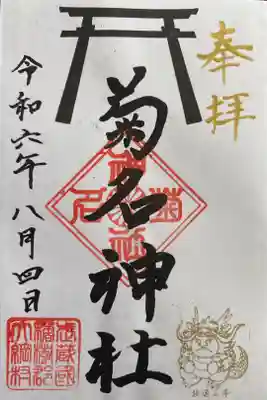 奉拝
菊名神社
令和六年八月四日
菊名神社
武蔵國
橘樹郡
大綱村